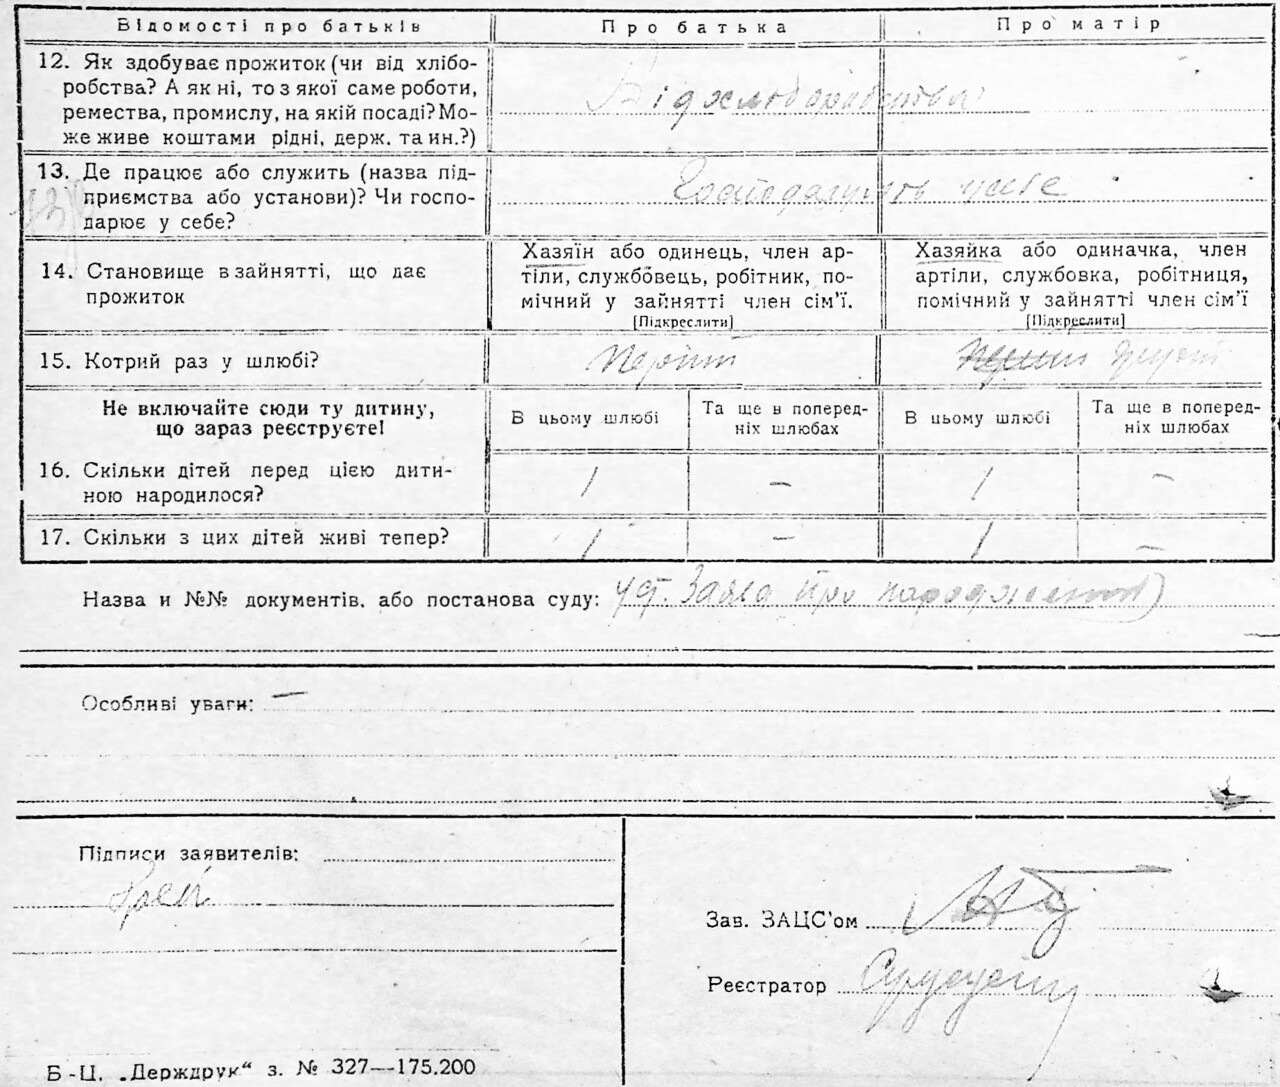 Відомості про батьків
Про батька
Про матір
12. Як здобуває прожиток (чи від хлібо-
робства? А як ні, то з якої саме роботи,
ремества, промислу, на якій посаді? Мо-
же живе коштами рідні, держ. та ин.?)
Від хліборобства
13. Де працює або служить (назва під-
приємства або установи)? Чи госпо-
дарює у себе?
Господарують у себе
14. Становище в зайнятті, що дає
прожиток
Хазяїн або одинець, член ар-
тіли, службовець, робітник, по-
мічний у зайнятті член сім'ї.
[Підкреслити]
Хазяйка або одиначка, член
артіли, службовка, робітниця,
помічний у зайнятті член сім'ї
[Підкреслити]
15. Котрий раз у шлюбі?
Не включайте сюди ту дитину,
що зараз реєструєте!
В цьому шлюбі
Та ще в поперед-
ніх шлюбах
В цьому шлюбі
Та ще в поперед-
ніх шлюбах
16. Скільки дітей перед цією дити-
ною народилося?
1 – 1 –
17. Скільки з цих дітей живі тепер?
1 – 1 –
Назва и №№ документів, або постанова суду: про народження
Особливі уваги: –
Підписи заявителів:
Зав. ЗАЦС'ом
Реєстратор
Б-Ц. „Держдрук“ з. № 327—175.200